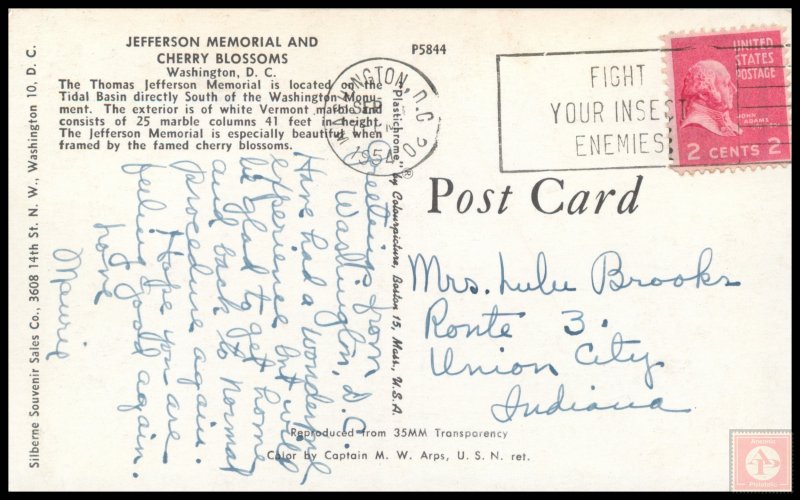 JEFFERSON MEMORIAL AND
CHERRY BLOSSOMS
Washington, D. C.
The Thomas Jefferson Memorial is located on the
Tidal Basin directly South of the Washington Monu-
ment. The exterior is of white Vermont marble and
consists of 25 marble columns 41 feet in height.
The Jefferson Memorial is especially beautiful when
framed by the famed cherry blossoms.
P5844
WASHINGTON, D.C.
SEP
1954
FIGHT
YOUR INSECT
ENEMIES
UNITED
STATES
POSTAGE
JOHN
ADAMS
2 CENTS 2
Silberne Souvenir Sales Co., 3608 14th St. N. W., Washington 10, D. C.
"Plastichrome"® by Colourpicture, Boston 15, Mass., U.S.A.
Post Card
Greetings from
Washington, D.C.
Have had a wonderful
experience but will
be glad to get home
and back to normal
procedure again.
Hope you are
feeling good again.
Love
Maurie
Mrs. Lulu Brooks
Route 3.
Union City
Indiana
Reproduced from 35MM Transparency
Color by Captain M. W. Arps, U. S. N. ret.
Philatelic